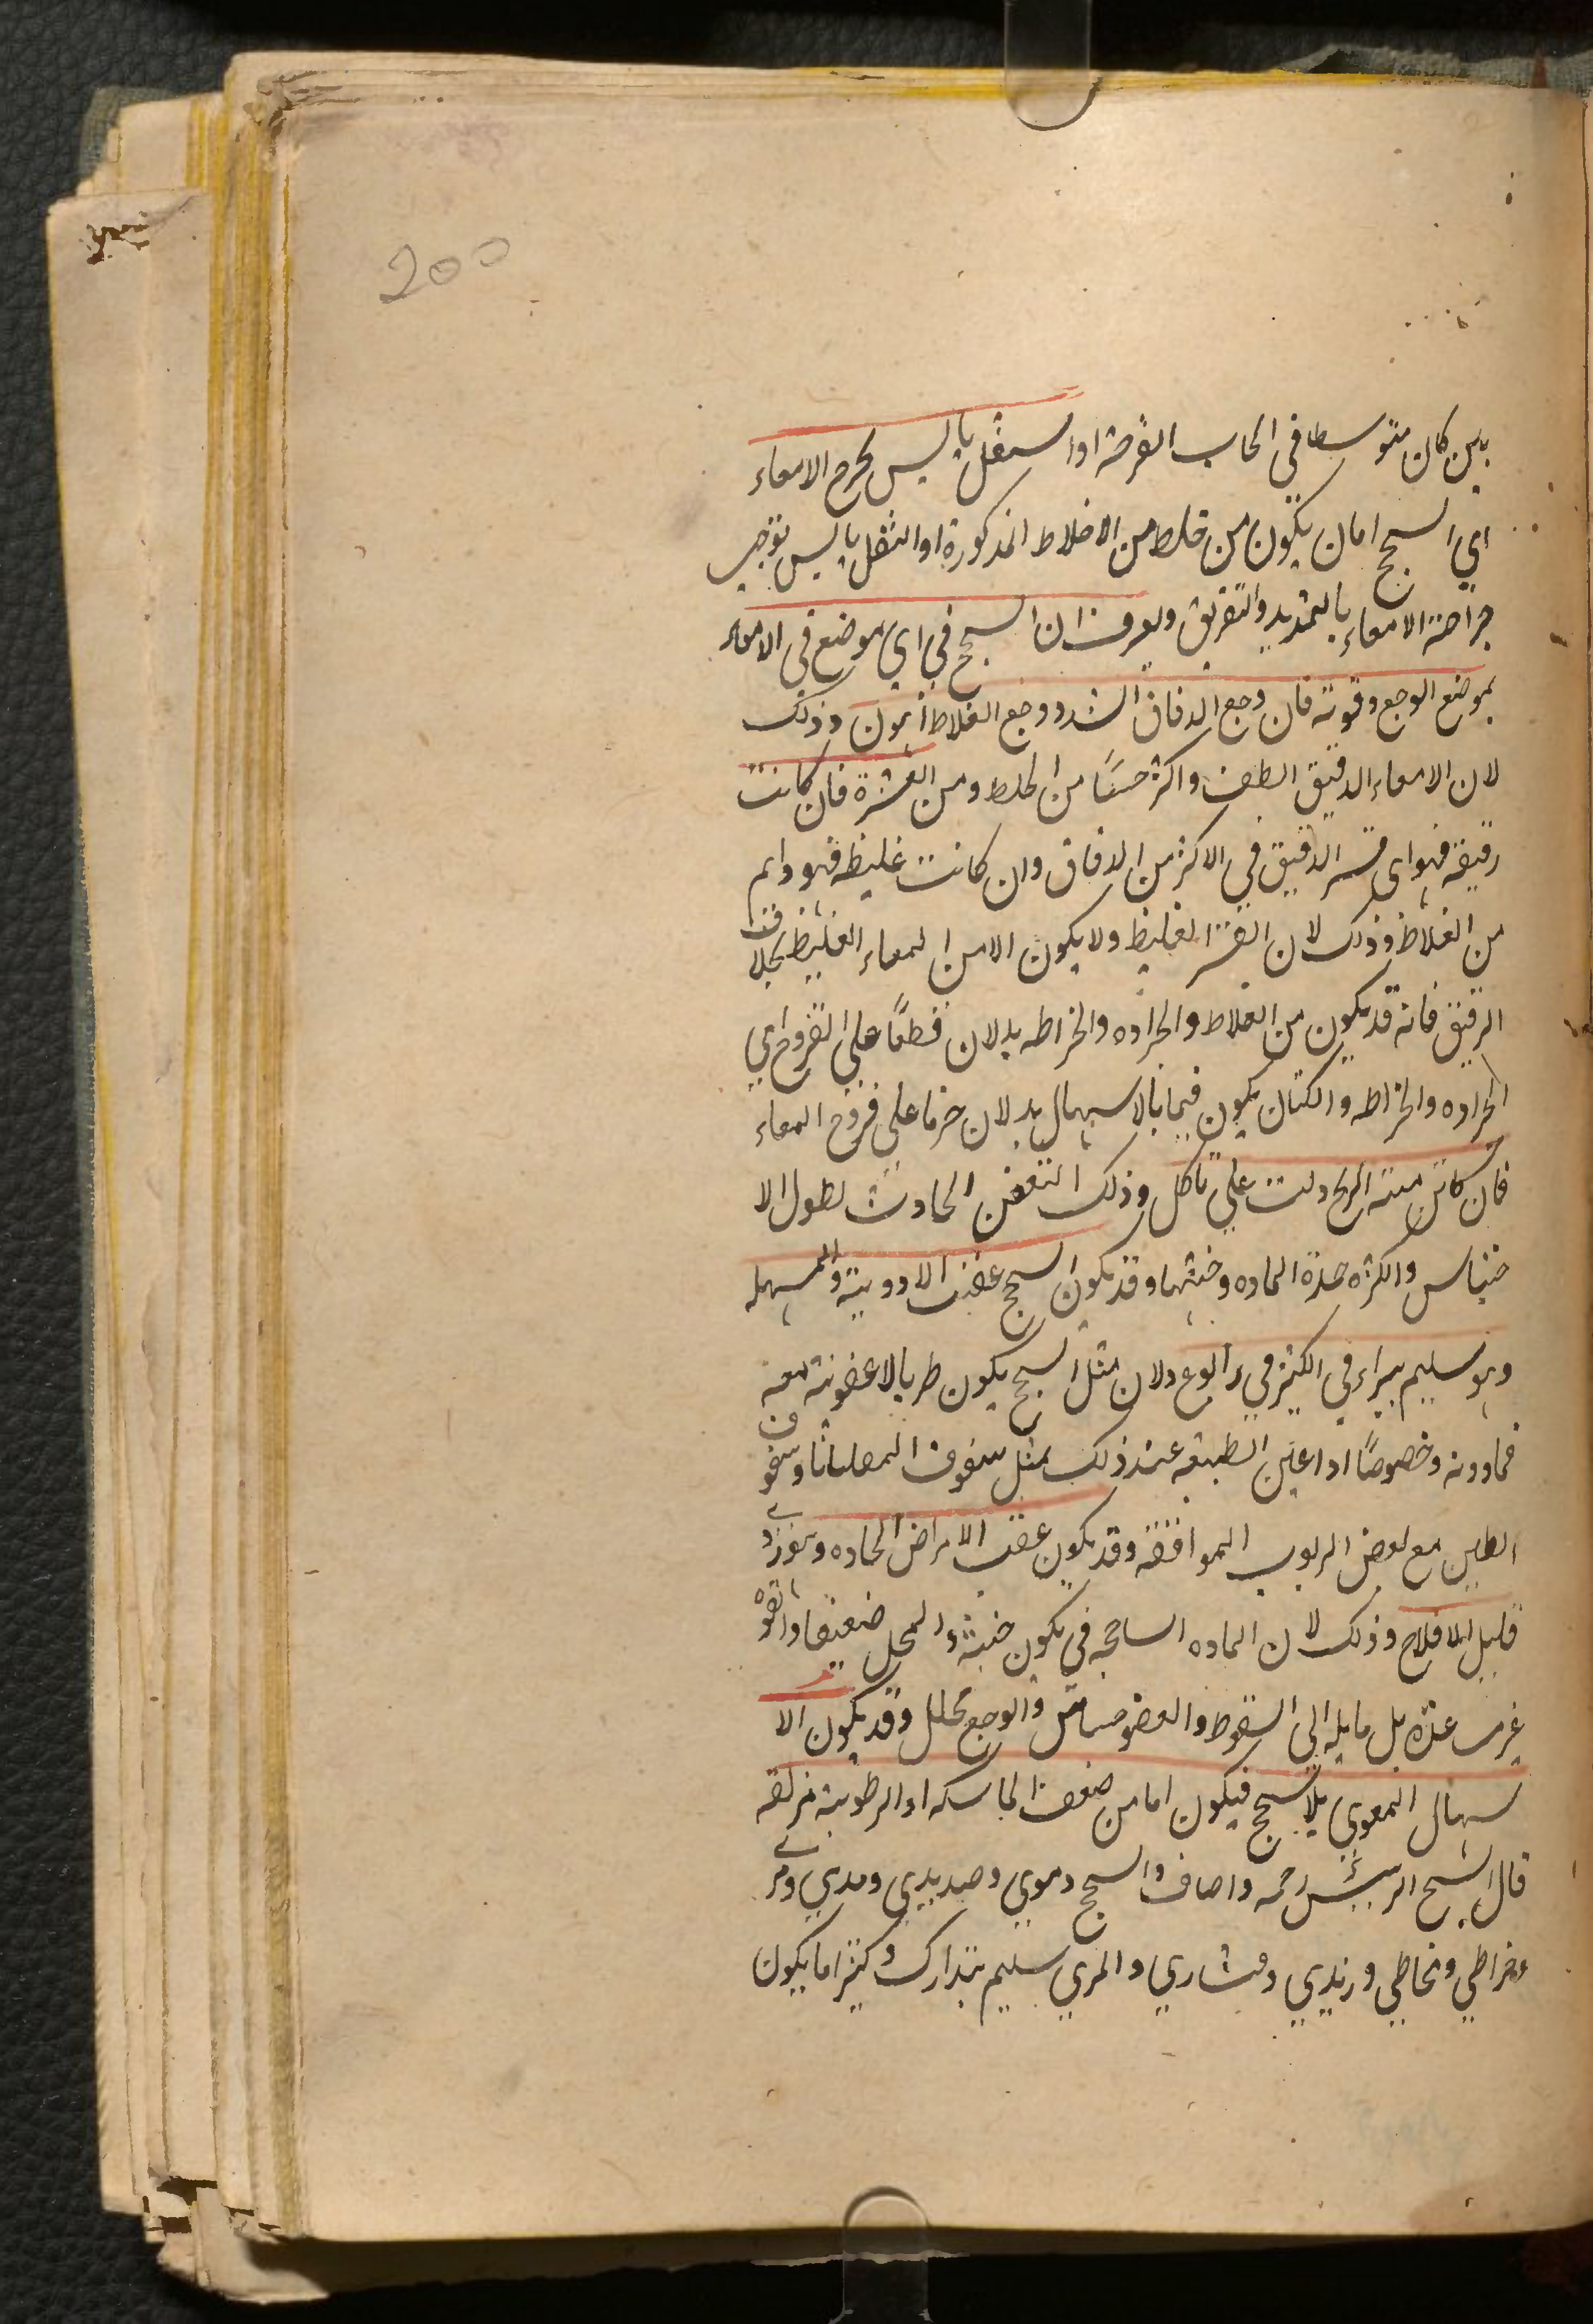 200
بين كان متوسطا في الحاب القرحة او السثقل يابس يحرح الامعاء
اي السحج اما ان يكون من خلط من الاخلاط المذكورة او الثفل يابس توجب
جراحة الامعاء بالتمديد والتفريق ويعرف ان السحج في اي موضع في الامعاء
بموضع الوجع وقوته فان وجع الدقاق اشد ووجع الغلاط أهون وذلك
لان الامعاء الدقيق الطف واكثر حسًا من الخلط ومن القشرة فان كانت
رقيقة فهو اى قشر الدقيق في الاكثر من الدقاق وان كانت غليظه فهو دايم
من الغلاظ وذلك لان القشر الغليظ ولا يكون الا من المعاء الغليظ بخلاف
الرقيق فانه قد يكون من الغلاط والجراده والخراطه يدلان قطعًا على القروح اي
الجراده والخراطه والكتان يكون فيما بالاسهال يدلان جزما على قروح المعاء
فان كانت منتنه الريح دلت على تاكل وذلك التعفن الحادث لطول الا
حتباس والكثره حدة الماده وخبثها وقد يكون السحج عقيب الادوية والمسهله
وهو سليم يبراء في الكثير في رابوع ولان مثل السحج يكون طريا لا عفونة معه
فما دونه وخصوصًا اذا اعين الطبيعه عند ذلك بمثل سفوف المقلياثا وسفوف
الطين مع بعض الربوب الموافقه وقد يكون عقيب الامراض الحاده وهو ردي
قليل الافلاح وذلك لان الماده الساحجه في يكون خبيثه والمحل ضعيفا والقوه
غير عنده بل مايله الى السقوط والعضو حساس والوجع محلل وقد يكون الا
سهال المعوي بلا سحج فيكون اما من ضعف الماسكه او الرطوبة مزلقه
قال الشيخ الرئيس رحمه واصاف السحج دموي وصديدي ومدي ومري
وخراطي ومخاطي وزبدي وقشاري والمري سليم يتدارك وكثيرا ما يكون